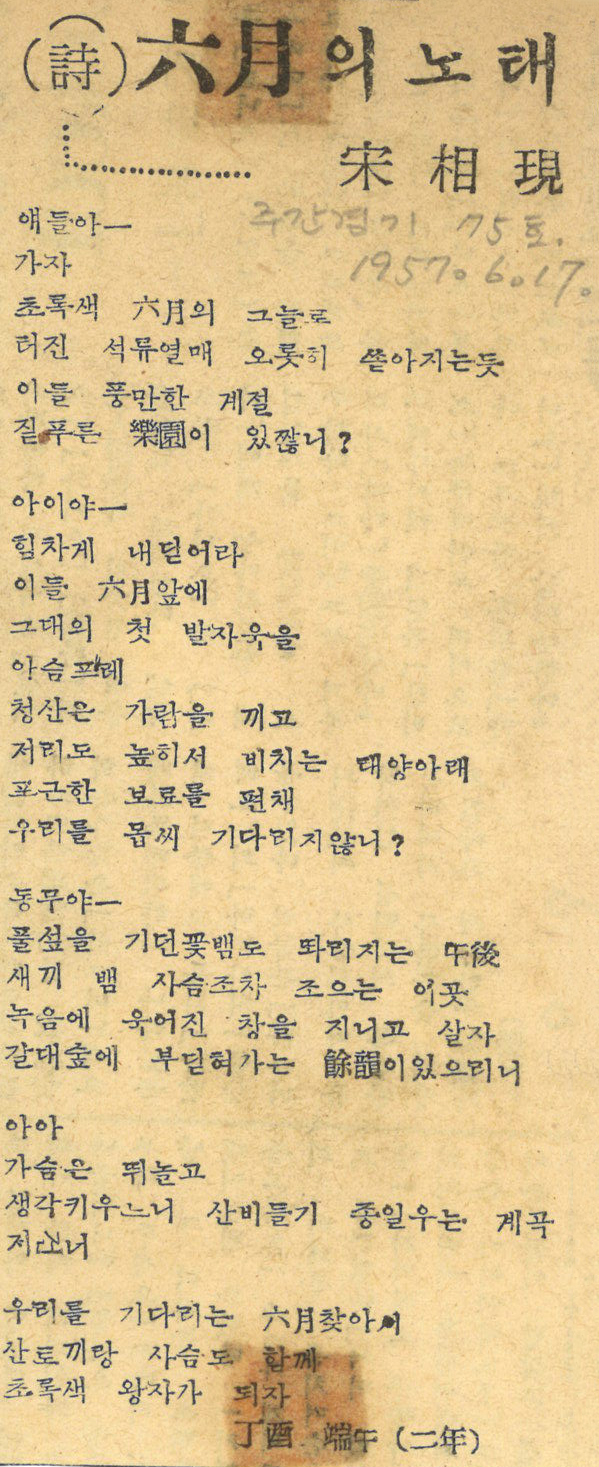 (詩) 六月의 노래
宋相現
주간경기 75호.
1957. 6. 17.
얘들아—
가자
초록색 六月의 그늘로
터진 석류열매 오롯히 쏟아지는듯
이들 풍만한 계절
질푸른 樂園이 있짢니?
아이야—
힘차게 내딛어라
이들 六月앞에
그대의 첫 발자욱을
아슴프레
청산은 가람을 끼고
저리도 높히서 비치는 태양아래
포근한 보료를 편채
우리를 몹씨 기다리지않니?
동무야—
풀섶을 기던꽃뱀도 똬리지는 午後
새끼 뱀 사슴조차 조으는 이곳
녹음에 욱어진 창을 지니고 살자
갈대숲에 부딛혀가는 餘韻이있으리니
아아
가슴은 뛰놀고
생각키우느니 산비들기 종일우는 계곡
저 너
우리를 기다리는 六月찾아서
산토끼랑 사슴도 함께
초록색 왕자가 되자
丁酉 端午 (二年)